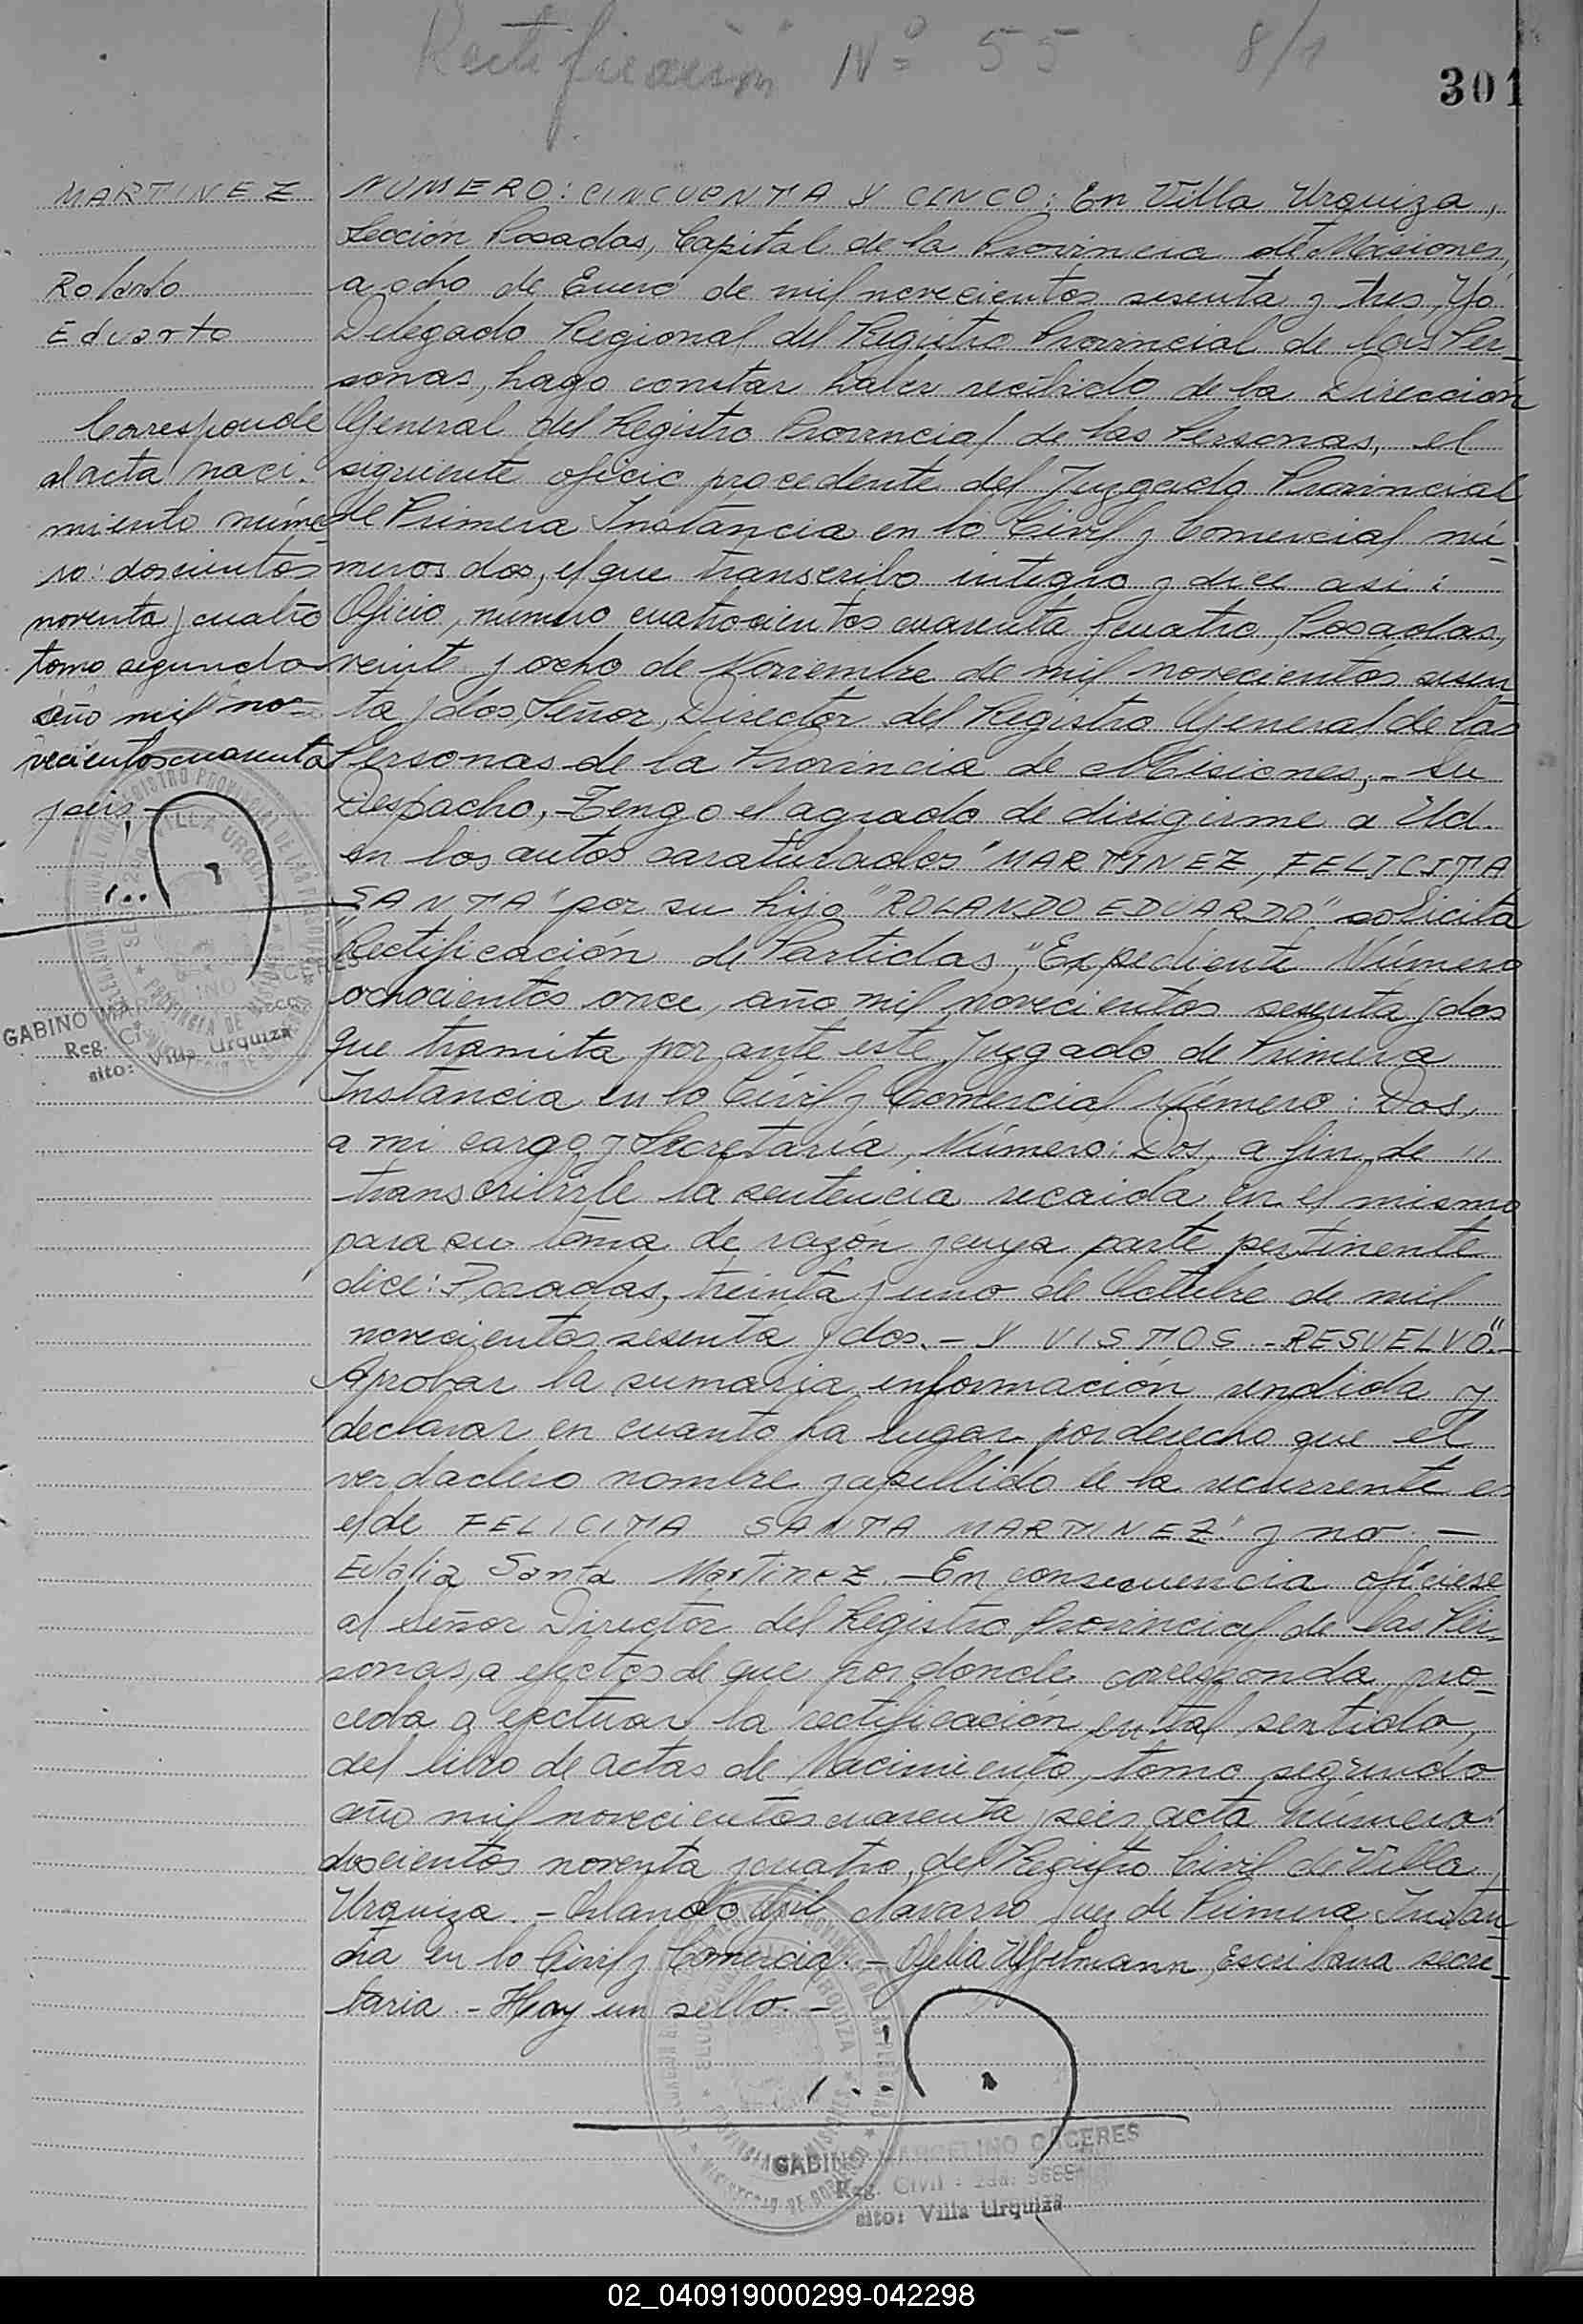 Rectificación Nº 55 8/1
301
MARTINEZ
Rolando
Eduardo
Corresponde
al acta naci-
miento núme
ro: doscientos
noventa y cuatro
tomo segundo
año mil no-
vecientos cuarenta
y seis.-
NUMERO: CINCUENTA Y CINCO: En Villa Urquiza,
Sección Posadas, Capital de la Provincia de Misiones,
a ocho de Enero de mil novecientos sesenta y tres, Yo
Delegado Regional del Registro Provincial de las Per-
sonas, hago constar haber recibido de la Dirección
General del Registro Provincial de las Personas, el
siguiente oficio procedente del Juzgado Provincial
de Primera Instancia en lo Civil y Comercial nú-
meros dos, el que transcribo integro y dice asi:
Oficio, número cuatrocientos cuarenta y cuatro, Posadas,
veinte y ocho de Noviembre de mil novecientos sesen
ta y dos, Señor, Director del Registro General de las
Personas de la Provincia de Misiones,- Su
Despacho,- Tengo el agrado de dirigirme a Ud.
en los autos caratulados "MARTINEZ, FELICITA
SANTA" por su hijo "ROLANDO EDUARDO" solicita
"Rectificación de Partidas", Expediente Número
ochocientos once, año mil novecientos sesenta y dos
que tramita por ante este Juzgado de Primera
Instancia en lo Civil y Comercial Número: Dos,
a mi cargo y Secretaría, Número: Dos, a fin de "
transcribirle la sentencia recaida en el mismo
para su toma de razón y cuya parte pertinente
dice: Posadas, treinta y uno de Octubre de mil
novecientos sesenta y dos.- Y VISTOS.- RESUELVO".-
Aprobar la sumaria información rendida y
declarar en cuanto ha lugar por derecho que el
verdadero nombre y apellido de la recurrente es
el de FELICITA SANTA MARTINEZ" y no -
Eulalia Santa Martinez.- En consecuencia oficiese
al Señor Director del Registro Provincial de las Per-
sonas, a efectos de que por donde corresponda, pro-
ceda a efectuar la rectificación en tal sentido,
del libro de actas de Nacimiento, tomo segundo
año mil novecientos cuarenta y seis, acta número:
doscientos noventa y cuatro, del Registro Civil de Villa
Urquiza.- Orlando Navarro Juez de Primera Instan
cia en lo Civil y Comercial.- Ofelia Uffelmann, Escribana secre-
taria.- Hay un sello.-
GABINO MAR
Reg. Ci
sito: Villa Urquiza
GABINO MARCELINO CACERES
Reg. Civil - 2da.
sito: Villa Urquiza
02_040919000299-042298